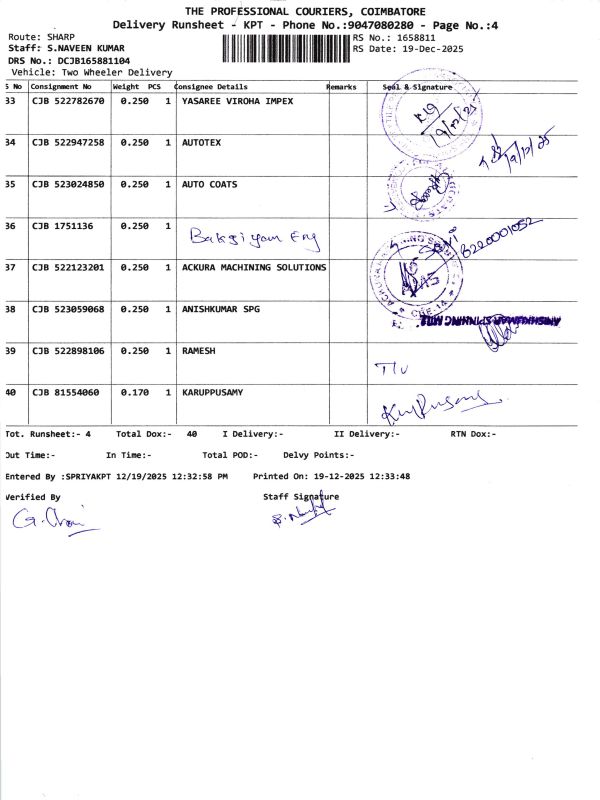 THE PROFESSIONAL COURIERS, COIMBATORE
Delivery Runsheet - KPT - Phone No.:9047080280 - Page No.:4
Route: SHARP
RS No.: 1658811
Staff: S.NAVEEN KUMAR
RS Date: 19-Dec-2025
DRS No.: DCJB165881104
Vehicle: Two Wheeler Delivery
S No Consignment No Weight PCS Consignee Details Remarks Seal & Signature
33 CJB 522782670 0.250 1 YASAREE VIROHA IMPEX
19/12/25
34 CJB 522947258 0.250 1 AUTOTEX
19/12/25
35 CJB 523024850 0.250 1 AUTO COATS
36 CJB 1751136 0.250 1 Bakgiyam Eng
6220001052
37 CJB 522123201 0.250 1 ACKURA MACHINING SOLUTIONS
CBE-14
38 CJB 523059068 0.250 1 ANISHKUMAR SPG
ANISHKUMAR SPINNING MILL
39 CJB 522898106 0.250 1 RAMESH
40 CJB 81554060 0.170 1 KARUPPUSAMY
Tot. Runsheet:- 4 Total Dox:- 40 I Delivery:- II Delivery:- RTN Dox:-
Out Time:- In Time:- Total POD:- Delvy Points:-
Entered By :SPRIYAKPT 12/19/2025 12:32:58 PM Printed On: 19-12-2025 12:33:48
Verified By Staff Signature